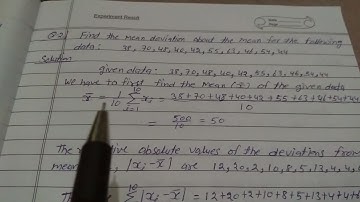 Experiment Result
Q2) Find the mean deviation about the mean for the following
data: 38, 70, 48, 40, 42, 55, 63, 46, 54, 44
Solution
given data: 38, 70, 48, 40, 42, 55, 63, 46, 54, 44
We have to first find the Mean (x̄) of the given data
x̄ = 1/10 10∑i=1 xi = 38+70+48+40+42+55+63+46+54+44 / 10
= 500/10 = 50
The absolute values of the deviations from
mean |xi-x̄| are 12, 20, 2, 10, 8, 5, 13, 4, 4,
10∑ |xi-x̄| = 12+20+2+10+8+5+13+4+4+6